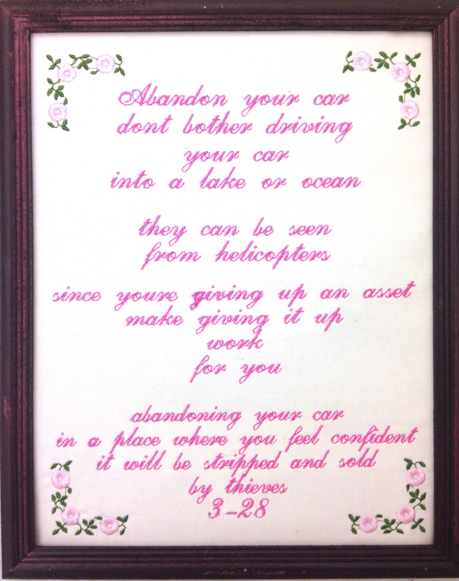 Abandon your car
dont bother driving
your car
into a lake or ocean
they can be seen
from helicopters
since youre giving up an asset
make giving it up
work
for you
abandoning your car
in a place where you feel confident
it will be stripped and sold
by thieves
3-28